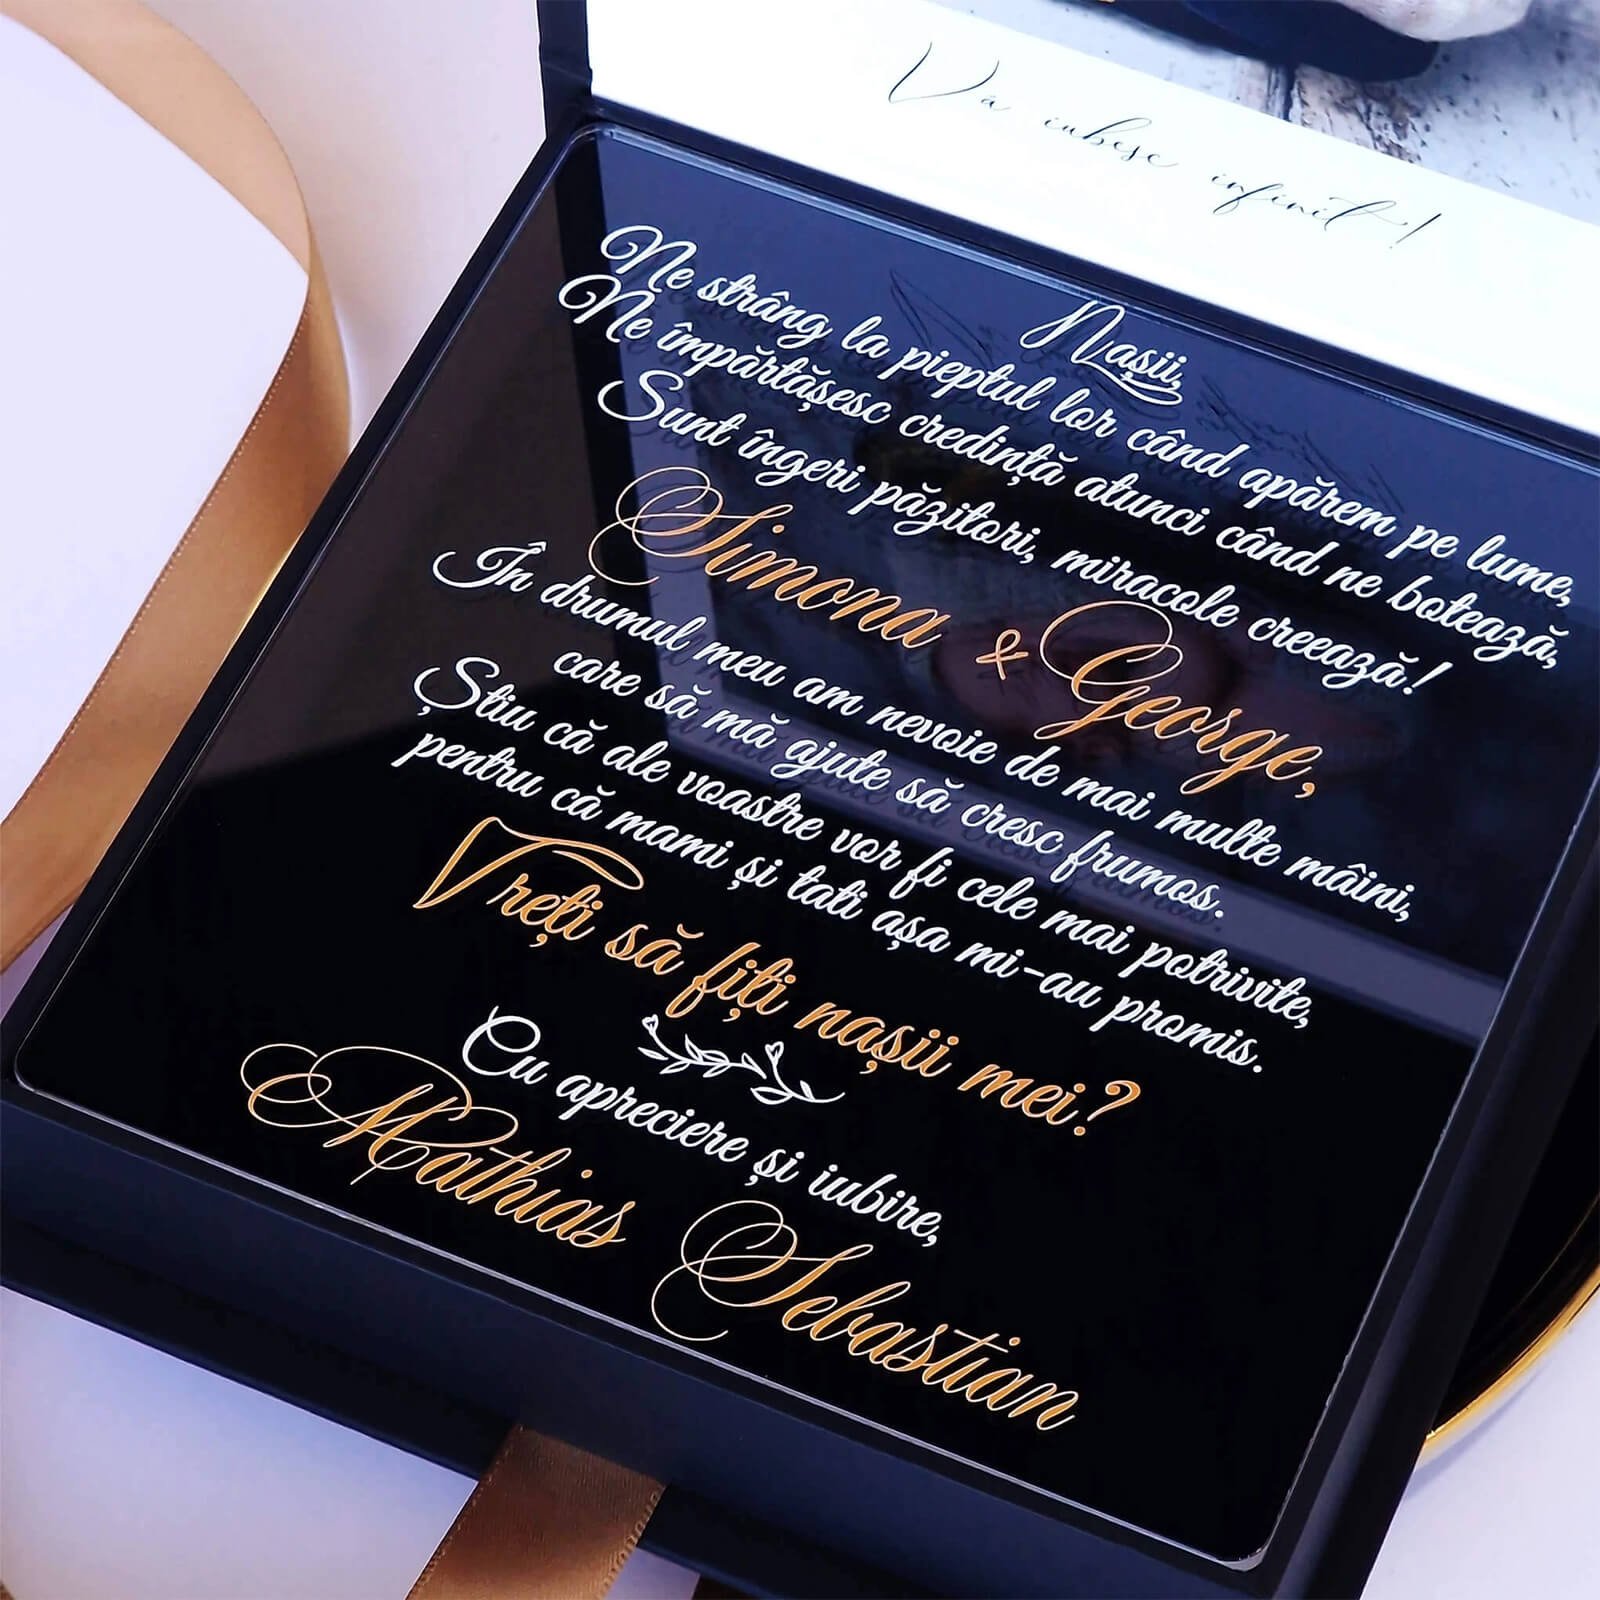 Vă iubesc infinit!
Nașii,
Ne strâng la pieptul lor când apărem pe lume,
Ne împărtășesc credință atunci când ne botează,
Sunt îngeri păzitori, miracole creează!
Simona & George,
În drumul meu am nevoie de mai multe mâini,
care să mă ajute să cresc frumos.
Știu că ale voastre vor fi cele mai potrivite,
pentru că mami și tati așa mi-au promis.
Vreți să fiți nașii mei?
Cu apreciere și iubire,
Mathias Sebastian